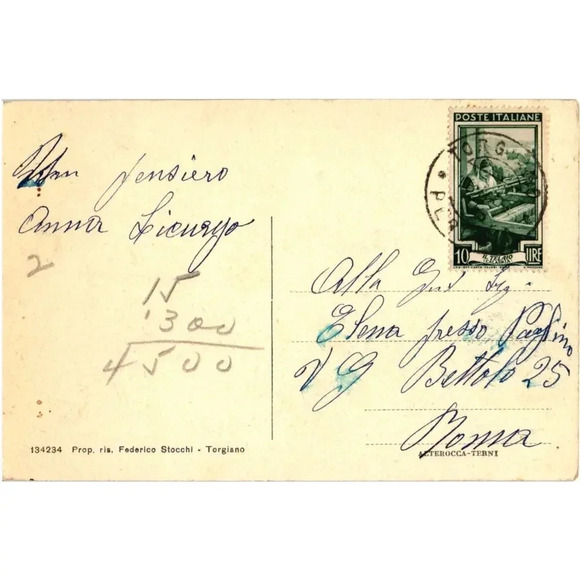 Un pensiero
Anna Licurgo
2
15
300
4500
134234 Prop. ris. Federico Stocchi - Torgiano
POSTE ITALIANE
IL TELAIO
10 LIRE
TORG
PER
Alla
Elena presso Paglino
V G Bettolo 25
Roma
ALTEROCCA-TERNI